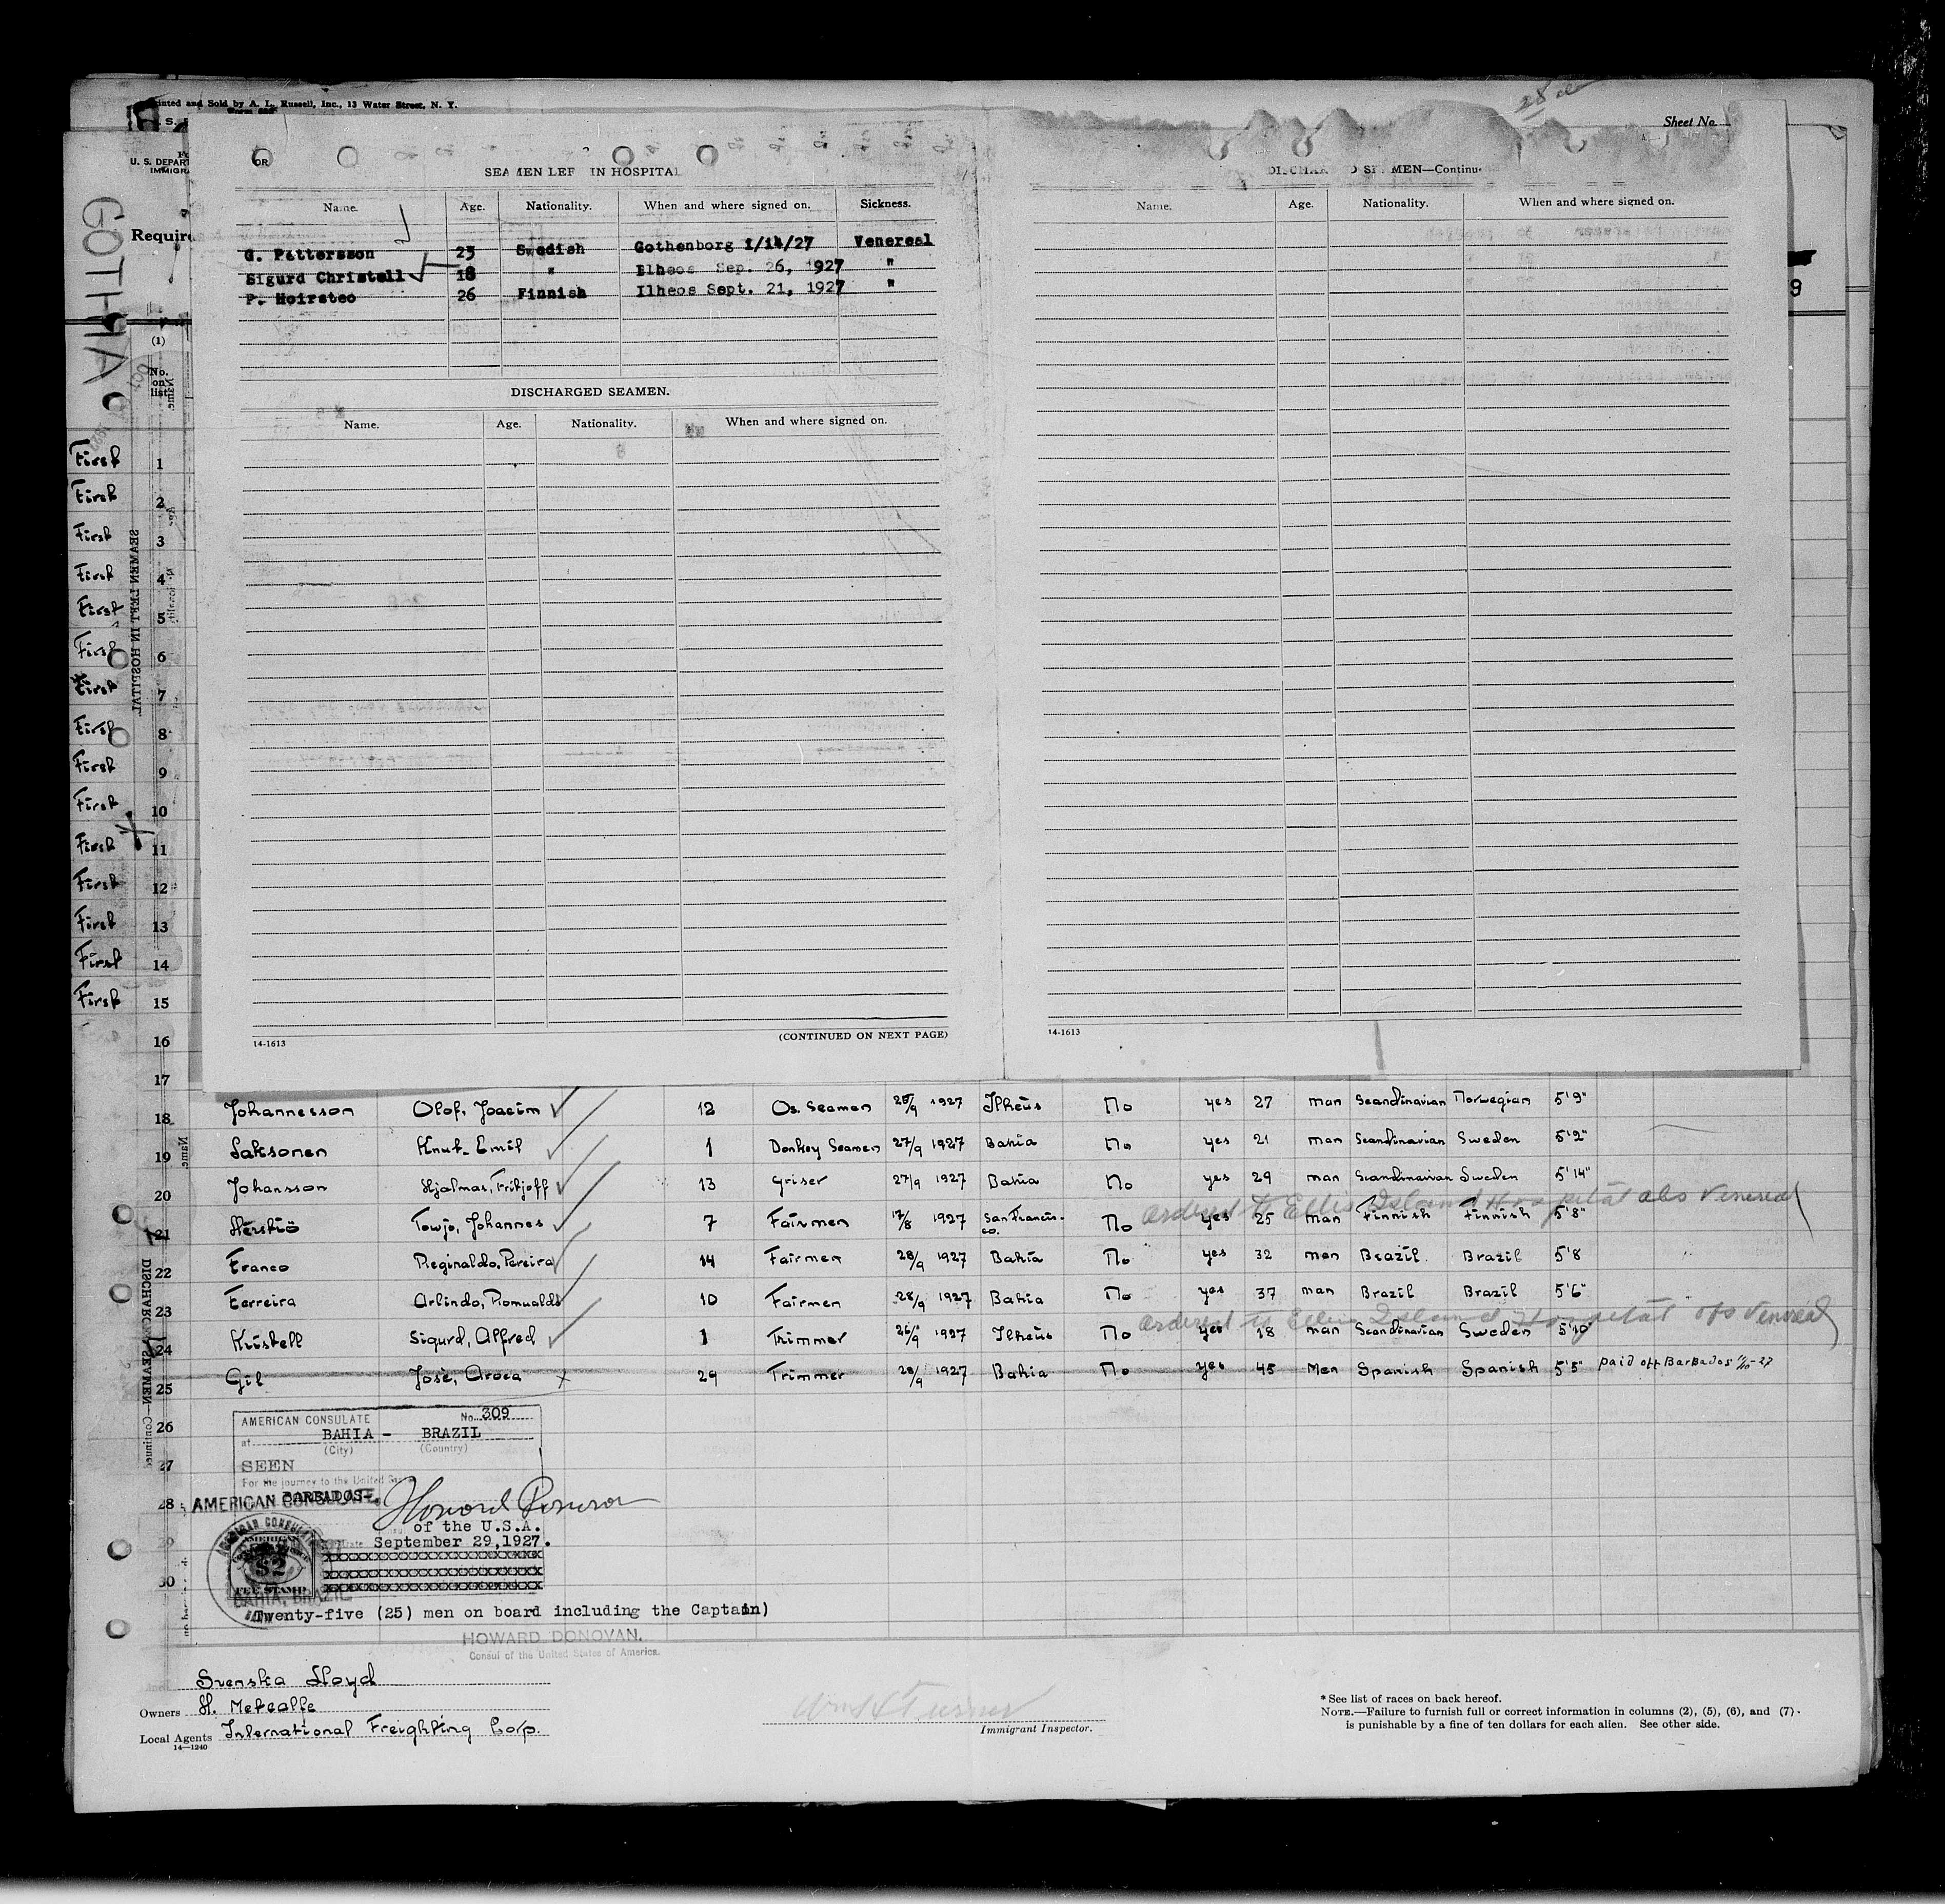 Printed and Sold by A. L. Russell, Inc., 13 Water Street, N. Y.
Sheet No.
U. S. DEPART
IMMIGRA
GOTHA
Require
OR
SEAMEN LEF IN HOSPITAL
Name. Age. Nationality. When and where signed on. Sickness.
G. Pettersson 25 Swedish Gothenborg 1/14/27 Venereal
Sigurd Christell 18 " Ilheos Sep. 26, 1927 "
P. Hoirsteo 26 Finnish Ilheos Sept. 21, 1927 "
DISCHARGED SEAMEN.
Name. Age. Nationality. When and where signed on.
14-1613 (CONTINUED ON NEXT PAGE)
MEN—Continue
Name. Age. Nationality. When and where signed on.
14-1613
9
(1)
No. on list
First 1
First 2
First 3
First 4
First 5
First 6
First 7
First 8
First 9
First 10
First 11
First 12
First 13
First 14
First 15
16
17
18 Johannesson Olof, Joacim 12 Os. Seamen 1927 Ilheus No yes 27 man Scandinavian Norwegian 5'9"
19 Laksonen Knut-Emil 1 Donkey Seamen 27/9 1927 Bahia No yes 21 man Scandinavian Sweden 5'2"
20 Johansson Hjalmar, Fritjoff 13 Griser 27/9 1927 Bahia No yes 29 man Scandinavian Sweden 5'14"
ordered to Ellis Island Hospital Venereal
21 Herstiö Towjo, Johannes 7 Fairmen 17/8 1927 San Francis-co. No yes 25 man Finnish Finnish 5'8"
22 Franco Reginaldo, Pereira 14 Fairmen 28/9 1927 Bahia No yes 32 man Brazil Brazil 5'8
23 Ferreira Arlindo, Romualds 10 Fairmen 28/9 1927 Bahia No yes 37 man Brazil Brazil 5'6"
ordered to Ellis Island Hospital Venereal
24 Kristell Sigurd, Alfred 1 Trimmer 26/9 1927 Ilheus No yes 18 man Scandinavian Sweden 5'10"
25 Gil José, Aroca 29 Trimmer 28/9 1927 Bahia No yes 45 Men Spanish Spanish 5'5" paid off Barbados
26
27
28
29
30
AMERICAN CONSULATE No. 309
at BAHIA - BRAZIL
(City) (Country)
SEEN
For the journey to the United
AMERICAN CONSULATE
BARBADOS
Howard
of the U.S.A.
Date September 29,1927.
AMERICAN CONSULATE
$2
FEE STAMP
BAHIA, BRAZIL
Twenty-five (25) men on board including the Captain)
HOWARD DONOVAN.
Consul of the United States of America.
SEAMEN LEFT IN HOSPITAL
DISCHARGED SEAMEN—Continued
Svenska Lloyd
Owners H. Metcalfe
Local Agents International Freighting Corp.
14—1240
Immigrant Inspector.
* See list of races on back hereof.
NOTE.—Failure to furnish full or correct information in columns (2), (5), (6), and (7)
is punishable by a fine of ten dollars for each alien. See other side.